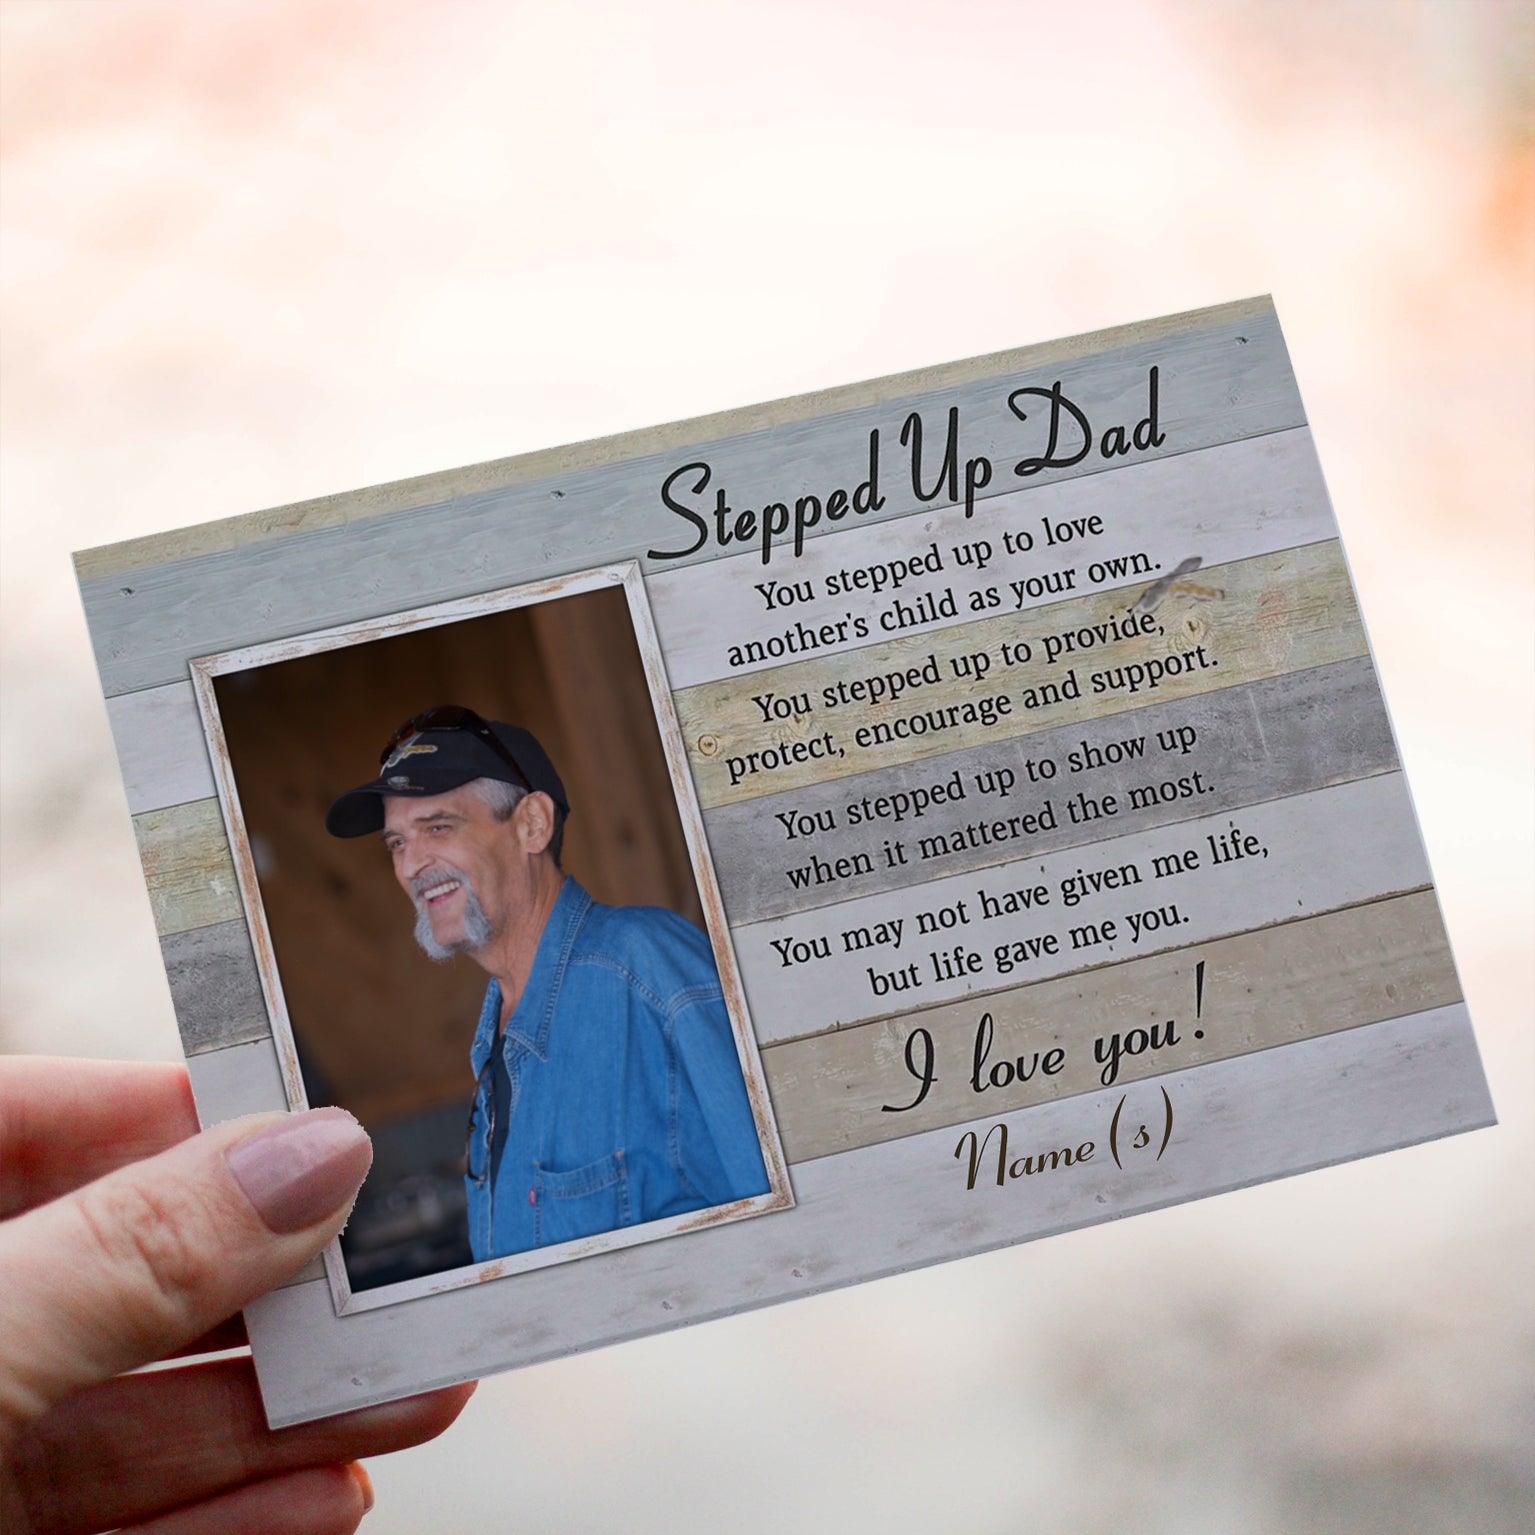 Stepped Up Dad
You stepped up to love
another's child as your own.
You stepped up to provide,
protect, encourage and support.
You stepped up to show up
when it mattered the most.
You may not have given me life,
but life gave me you.
I love you!
Name(s)